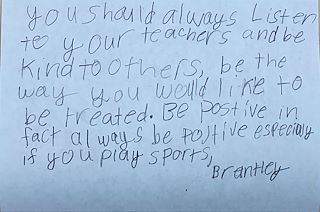 you should always Listen
to your teachers and be
kind to others, be the
way you would like to
be treated. Be postive in
fact always be positive especialy
if you play sports,
Brantley